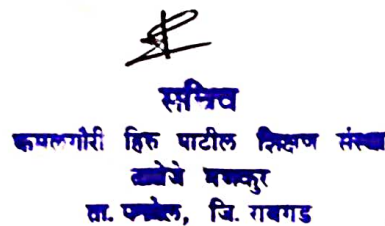 सचिव
कमलगौरी हिरु पाटील शिक्षण संस्था
तळोजे मजकूर
ता. पनवेल, जि. रायगड